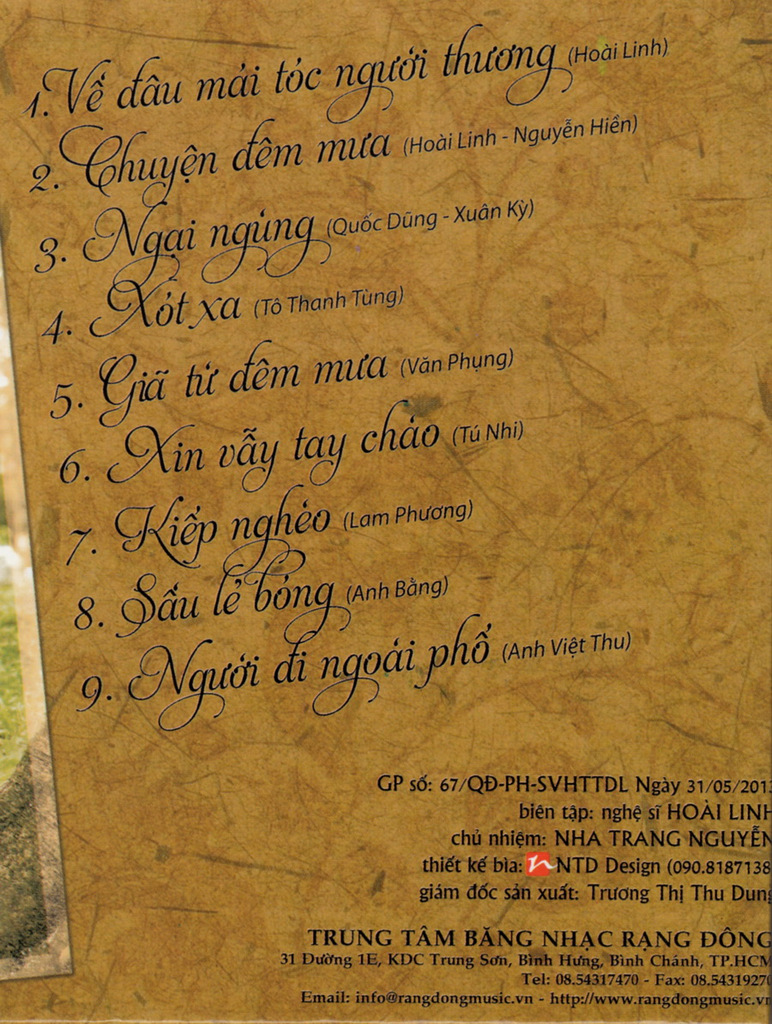 1. Về đâu mái tóc người thương (Hoài Linh)
2. Chuyện đêm mưa (Hoài Linh - Nguyễn Hiền)
3. Ngại ngùng (Quốc Dũng - Xuân Kỳ)
4. Xót xa (Tô Thanh Tùng)
5. Giã từ đêm mưa (Văn Phụng)
6. Xin vẫy tay chào (Tú Nhi)
7. Kiếp nghèo (Lam Phương)
8. Sầu lẻ bóng (Anh Bằng)
9. Người đi ngoài phố (Anh Việt Thu)
GP số: 67/QĐ-PH-SVHTTDL Ngày 31/05/2013
biên tập: nghệ sĩ HOÀI LINH
chủ nhiệm: NHA TRANG NGUYỄN
thiết kế bìa: NTD Design (090.8187138
giám đốc sản xuất: Trương Thị Thu Dung
TRUNG TÂM BĂNG NHẠC RẠNG ĐÔNG
31 Đường 1E, KDC Trung Sơn, Bình Hưng, Bình Chánh, TP.HCM
Tel: 08.54317470 - Fax: 08.54319270
Email: info@rangdongmusic.vn - http://www.rangdongmusic.vn